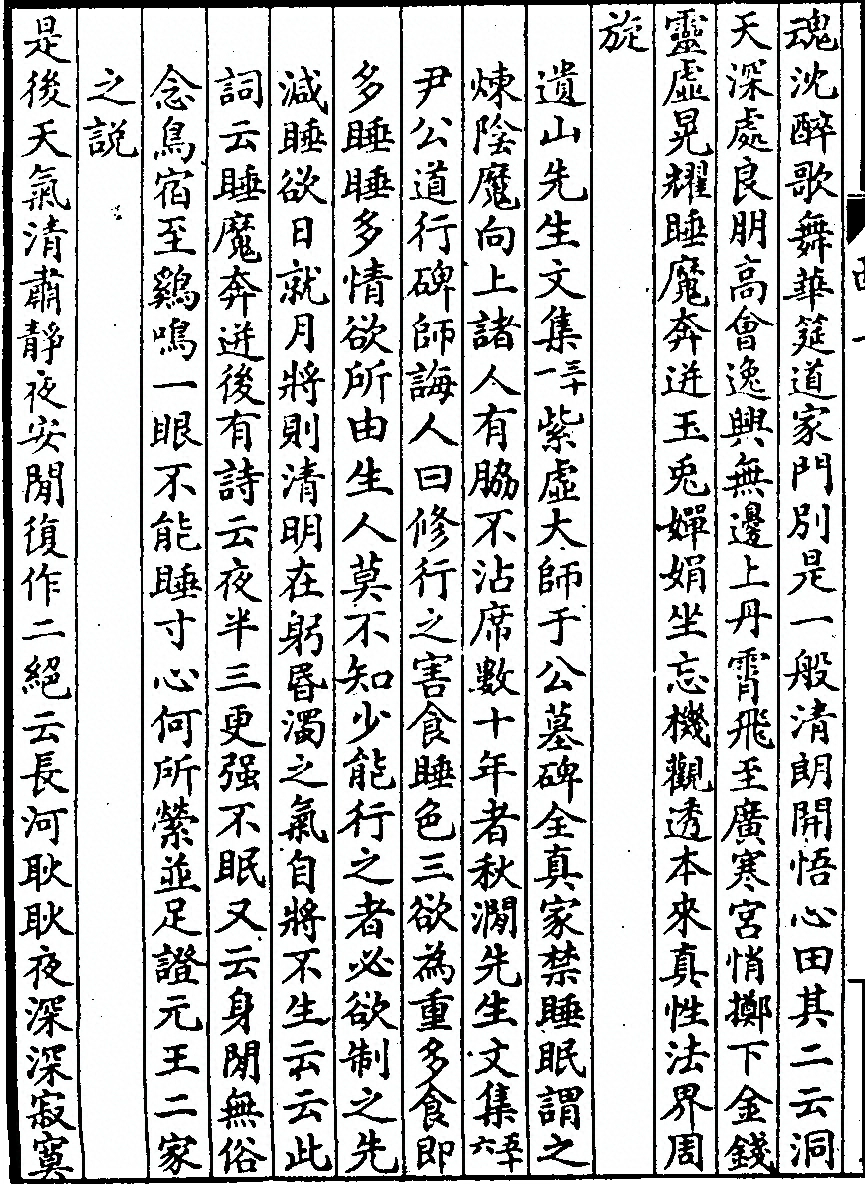 魂沈醉歌舞華筵道家門別是一般清朗開悟心田其二云洞
天深處良朋高會逸興無邊上丹霄飛至廣寒宮悄擲下金錢
靈虛晃耀睡魔奔迸玉兎嬋娟坐忘機觀透本來真性法界周
旋
遺山先生文集三十一紫虛大師于公墓碑全真家禁睡眠謂之
煉陰魔向上諸人有脇不沾席數十年者秋澗先生文集五十六
尹公道行碑師誨人曰修行之害食睡色三欲為重多食即
多睡睡多情欲所由生人莫不知少能行之者必欲制之先
減睡欲日就月將則清明在躬昏濁之氣自將不生云云此
詞云睡魔奔迸後有詩云夜半三更强不眠又云身閒無俗
念鳥宿至鷄鳴一眼不能睡寸心何所縈並足證元王二家
之説
是後天氣清肅靜夜安閒復作二絕云長河耿耿夜深深寂寞